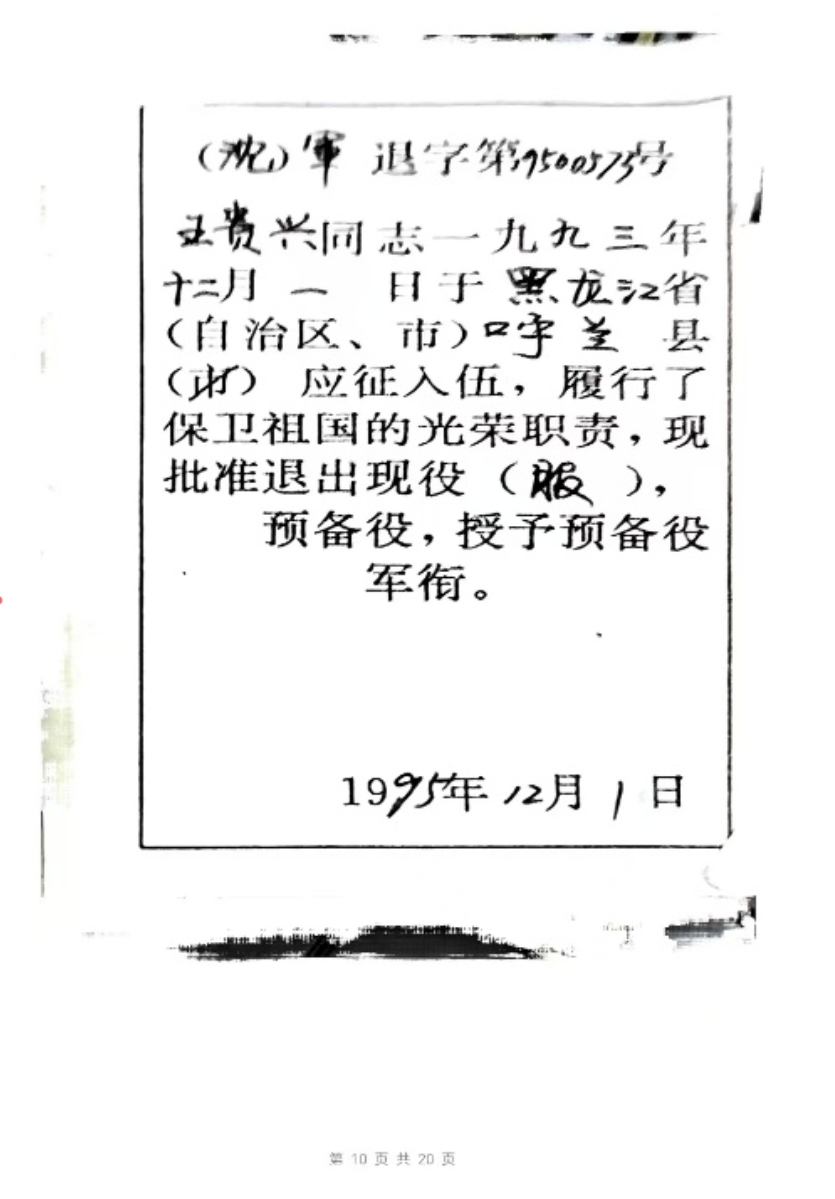 (沈)軍 退字第9500573号
王贵兴同志一九九三年
十二月 一 日于黑龙江省
(自治区、市)呼兰 县
(市) 应征入伍，履行了
保卫祖国的光荣职责，现
批准退出现役（服 ），
预备役，授予预备役
军衔。
1995年 12月 1 日
第 10 页 共 20 页